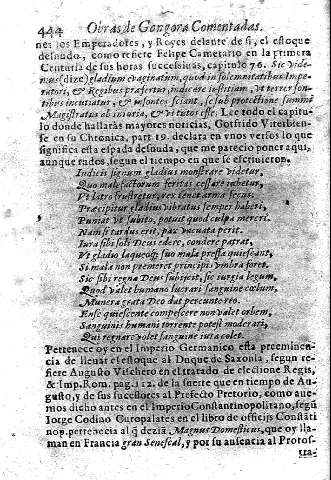 444 Obras de Gongora Comentadas.
nen los Emperadores, y Reyes delante de si, el estoque
desnudo, como refiere Felipe Camerario en la primera
Centuria de sus horas succesiuas, capitulo 76. Sic vide-
mus (dize) gladium euaginatum, quod in solemnitatibus Impe-
ratori, & Regibus præfertur, indicare iustitiam, vt terror son-
tibus incutiatur, & insontes sciant, se sub protectione summi
Magistratus ab iniuria, & vi tutos esse. Lee todo el capitu-
lo donde hallaràs mayores noticias. Gotfrido Viterbien-
se en su Chronica, part. 19. declara en vnos versos lo que
significa esta espada desnuda, que me pareciò poner aqui,
aunque rudos, segun el tiempo en que se escriuieron.
Indicij signum gladius monstrare videtur,
Quo malefactorum feritas cessare iubetur,
Vt latro frustretur, rex teneat arma secus,
Præcipitur gladius vibratus semper haberi,
Puniat vt subito, potuit quod culpa mereri.
Nam si tardus erit, pax vacuata perit.
Iura sibi soli Deus edere, condere patrat,
Vt gladio laqueoq; suo mala pressa quiescant,
Si mala non premeret principis vmbra foret.
Sic sibi regna Deus subijcit, sic surgit legum,
Quod valet humano lucrari sanguine cælum,
Munera grata Deo dat percunte reo.
Ense quiescente compescere non valet orbem,
Sanguinis humani torrente potest moderari,
Qui regnare volet sanguine iura colet.
Pertenece oy en el Imperio Germanico esta preeminen-
cia de lleuar el estoque al Duque de Saxonia, segun re-
fiere Augusto Vischero en el tratado de electione Regis,
& Imp. Rom. pag. 112. de la suerte que en tiempo de Au-
gusto, y de sus successores al Prefecto Pretorio, como aue-
mos dicho antes en el Imperio Constantinopolitano, segũ
Iorge Codino Curopalates en el libro de officijs Constãti
nop. pertenecia al q̃ dezià Magnus Domesticus, que oy lla-
man en Francia gran Senescal, y por su ausencia al Protos-
tra-